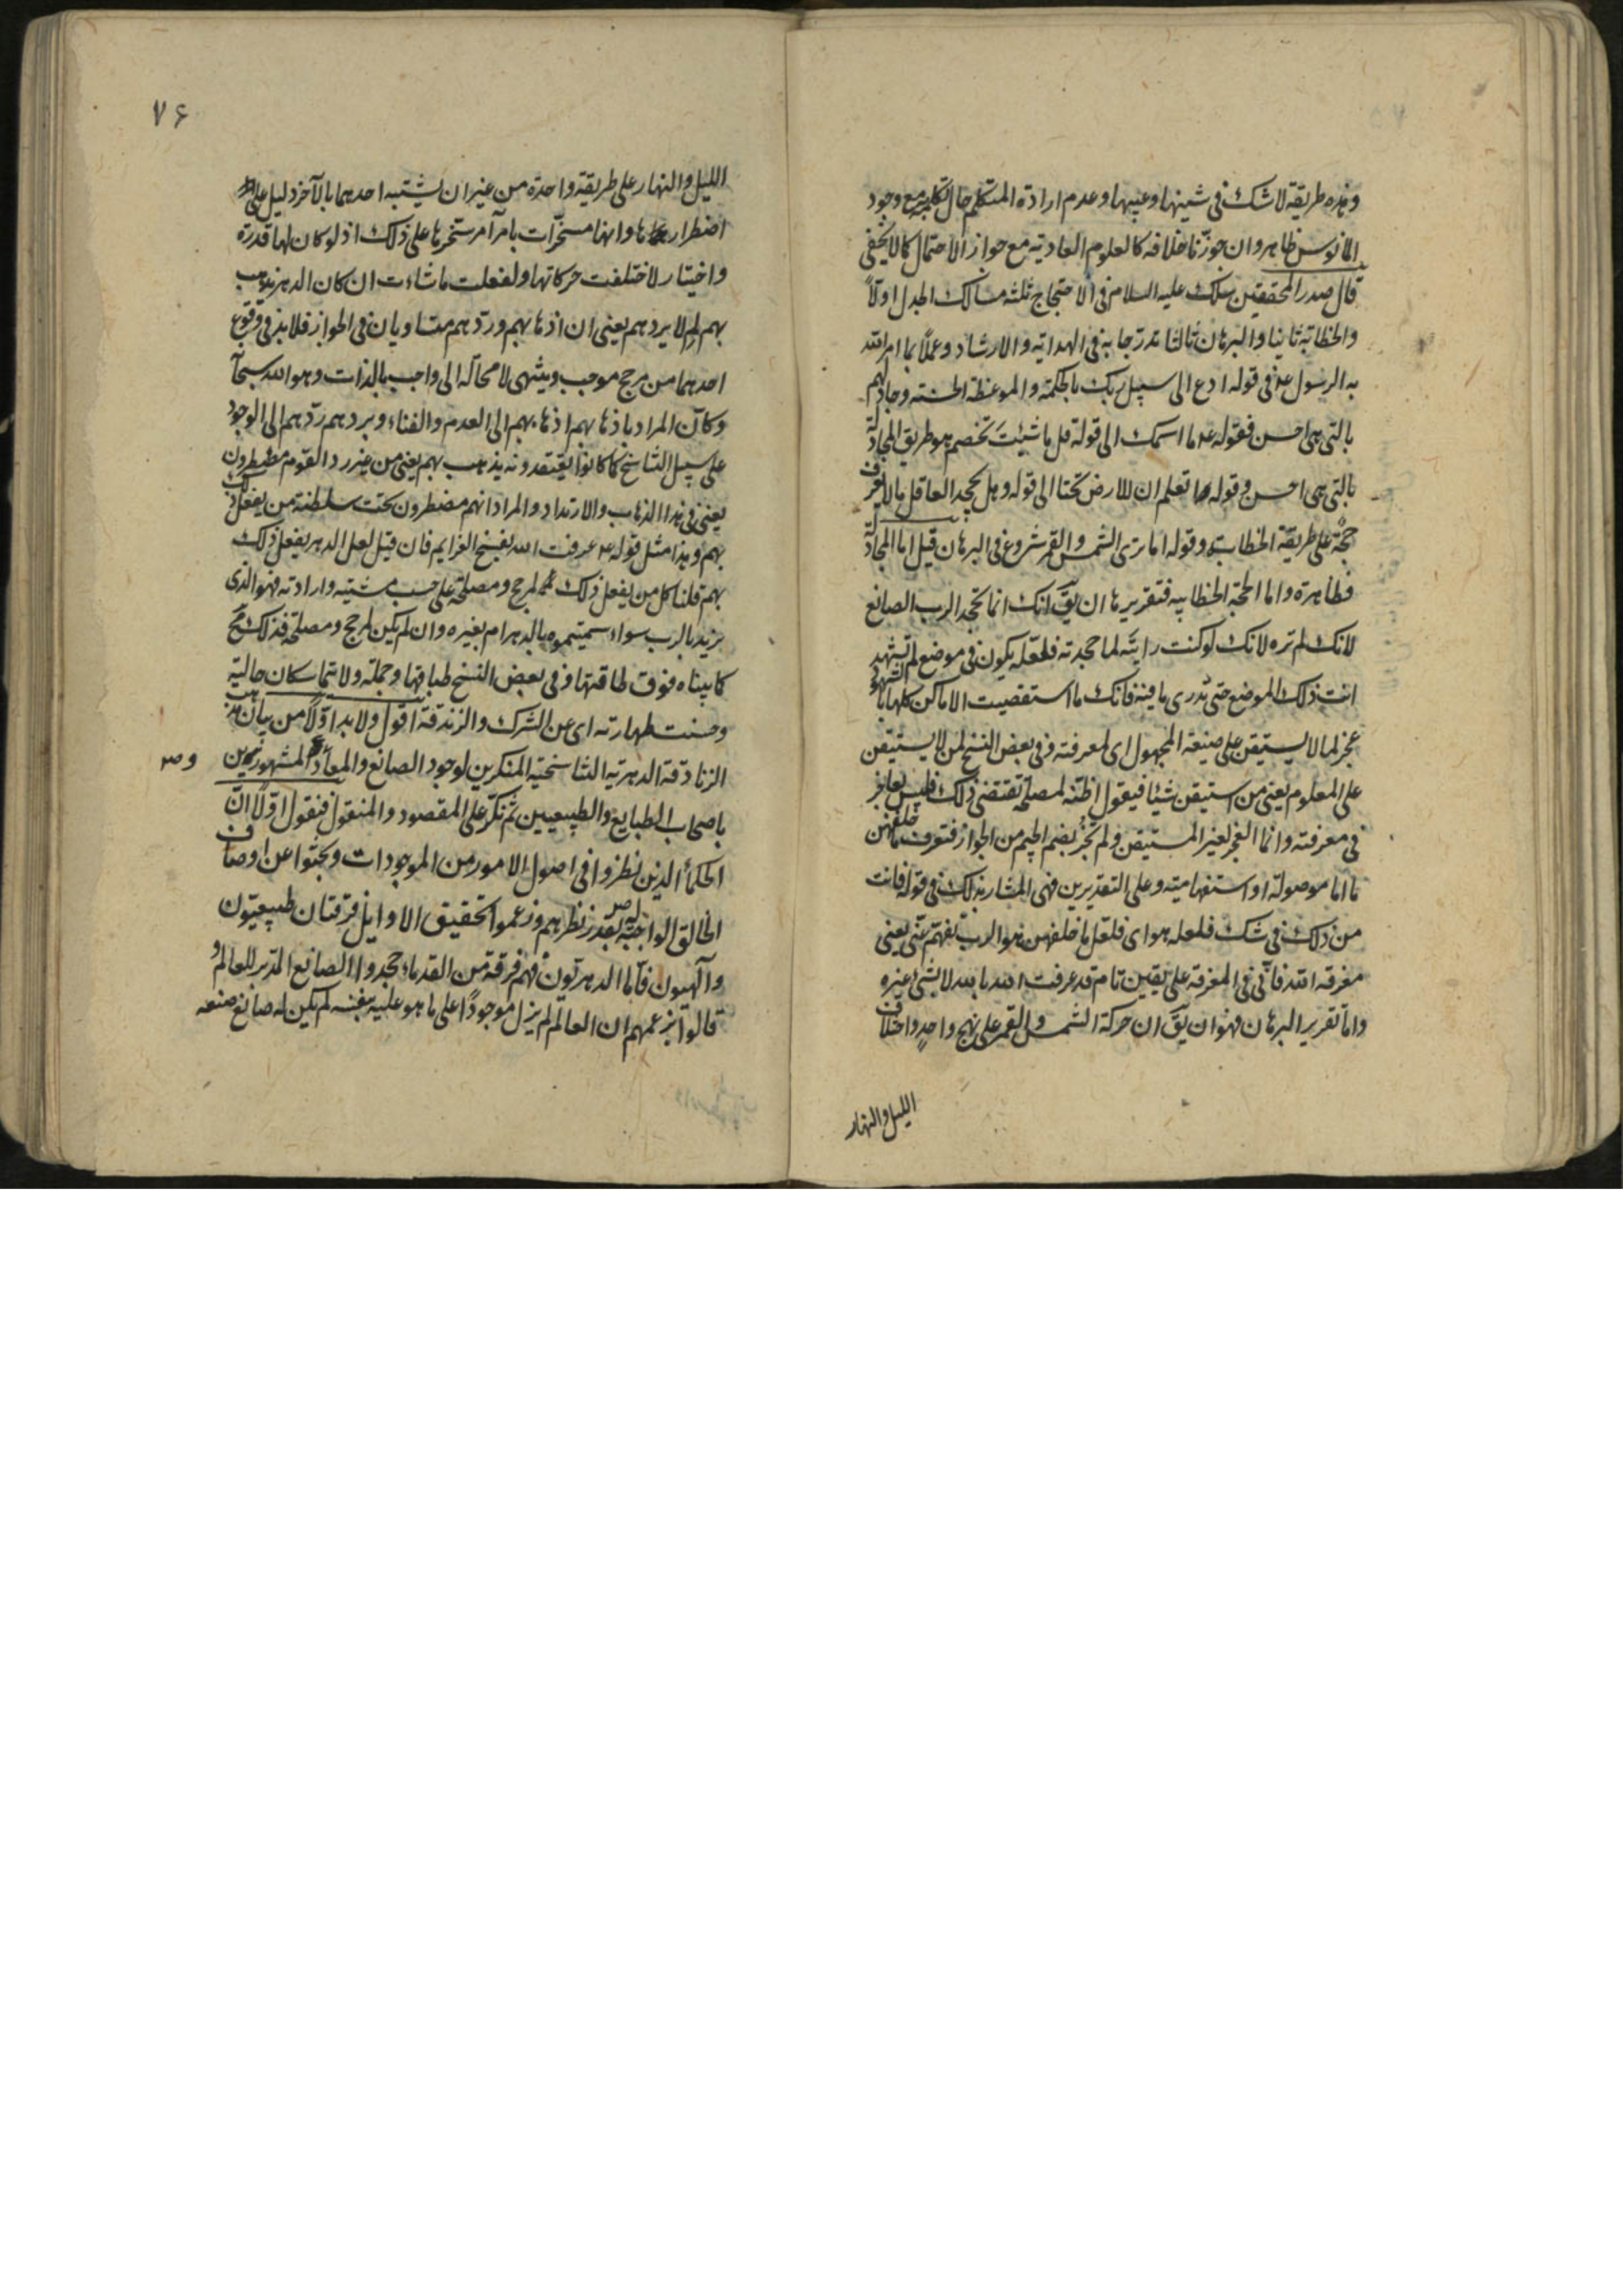 وهذه طريقة لا شك فى شينها وعيبها وعدم ارادة المتكلم حال تكلمه مع وجود
المانوس ظاهر وان جوزنا خلافه كالعلوم العادية مع جواز الاحتمال كما لا يخفى
قال صدر المحققين سلك عليه السلام فى الاحتجاج ثلثه مسالك الجدل اولاً
والخطابة ثانيا والبرهان ثالثا تدرجا به فى الهداية والارشاد وعملاً بما امر الله
به الرسول فى قوله ادع الى سبيل ربك بالحكمة والموعظة الحسنة وجادلهم
بالتى هى احسن فقوله ع ما اسمك الى قوله قل ما شئت تخصم هو طريق المجادلة
بالتى هى احسن وقوله اتعلم ان للارض تحتا الى قوله وهل يجحد العاقل ما لا يعرف
حجة على طريقة الخطابة وقوله اما ترى الشمس والقمر شروع فى البرهان قيل اما المجادلة
فظاهرة واما الحجة الخطابيه فتقريرها ان يقَ انك انما تجحد الرب الصانع
لانك لم تره لانك لو كنت رايته لما جحدته فلعله يكون فى موضع لم تشهد
انت ذلك الموضع حتى تدرى ما فيه فانك ما استقصيت الاماكن كلها بالشهود
عجز لما لا يستيقن على صيغة المجهول اى لمعرفته وفى بعض النسخ لمن لا يستيقن
على المعلوم يعنى من استيقن شيئا فيقول اظنه لمصلحة تقتضى ذلك فليس بعاجز
فى معرفته وانما العجز لغير المستيقن ولم تَجُز بضم الجيم من الجواز فتعرف ما خلفهن
ما اما موصولة او استفهامية وعلى التقديرين فهى المشار بذلك فى قوله فانت
من ذلك فى شك فلعله هو اى فلعل ما خلفهن هو الرب تفهم عنى يعنى
معرفة الله فانى فى المعرفة على يقين تام قد عرفت الله بالله لا بشئ غيره
واما تقرير البرهان فهو ان يقَ ان حركة الشمس والقمر على نهج واحدٍ واختلاف
الليل والنهار
٧۶
الليل والنهار على طريقة واحدة من غير ان يشتبه احدهما بالآخر دليل على
اضطرارها وانها مسخرات بامر آمر سخرها على ذلك اذ لو كان لها قدرة
واختيار لاختلفت حركاتها ولفعلت ما شاءت ان كان الدهر يذهب
بهم لِم لا يردهم يعنى ان اذهابهم وردهم متساويان فى الجواز فلا بد فى وقوع
احدهما من مرجح موجب وينتهى لا محالة الى واجب بالذات وهو الله سبحآ
وكان المراد باذهابهم اذهابهم الى العدم والفناء وبردهم ردهم الى الوجود
على سبيل التناسخ كما كانوا يعتقدونه يذهب بهم يعنى من غير رد القوم مضطرون
يعنى فى هذا الذهاب والارتداد والمراد انهم مضطرون تحت سلطنة من يفعل ذلك
بهم وهذا مثل قوله ع عرفت الله بفسخ العزايم فان قيل لعل الدهر يفعل ذلك
بهم قلنا كل من يفعل ذلك لمرجح ومصلحة على حسب مشيته وارادته فهو الذى
نريد بالرب سواء سميتموه بالدهر ام بغيره وان لم يكن لمرجح ومصلحة فذلك مح
كما بيناه فوق طاقتها وفى بعض النسخ طباقها وجملة ولا يتماسكان حالية
وحسنت طهارته اى عن الشرك والزندقة اقول ولا بد اولاً من بيان مذهب
الزنادقة الدهرية التناسخية المنكرين لوجود الصانع والمعاد المشهورين
وصر
باصحاب الطبايع والطبيعيين ثم نكرّ على المقصود والمنقول فنقول اولاً انّ
الحكماء الذين نظروا فى اصول الامور من الموجودات وبحثوا عن اوصاف
الخالق الواجبة له بقدر نظرهم وزعموا تحقيق الاوايل فرقتان طبيعيّون
وآلهيون فاما الدهريون فهم فرقة من القدماء جحدوا الصانع المدبر للعالم و
قالوا بزعمهم ان العالم لم يزل موجودًا على ما هو عليه بنفسه لم يكن له صانع صنعه